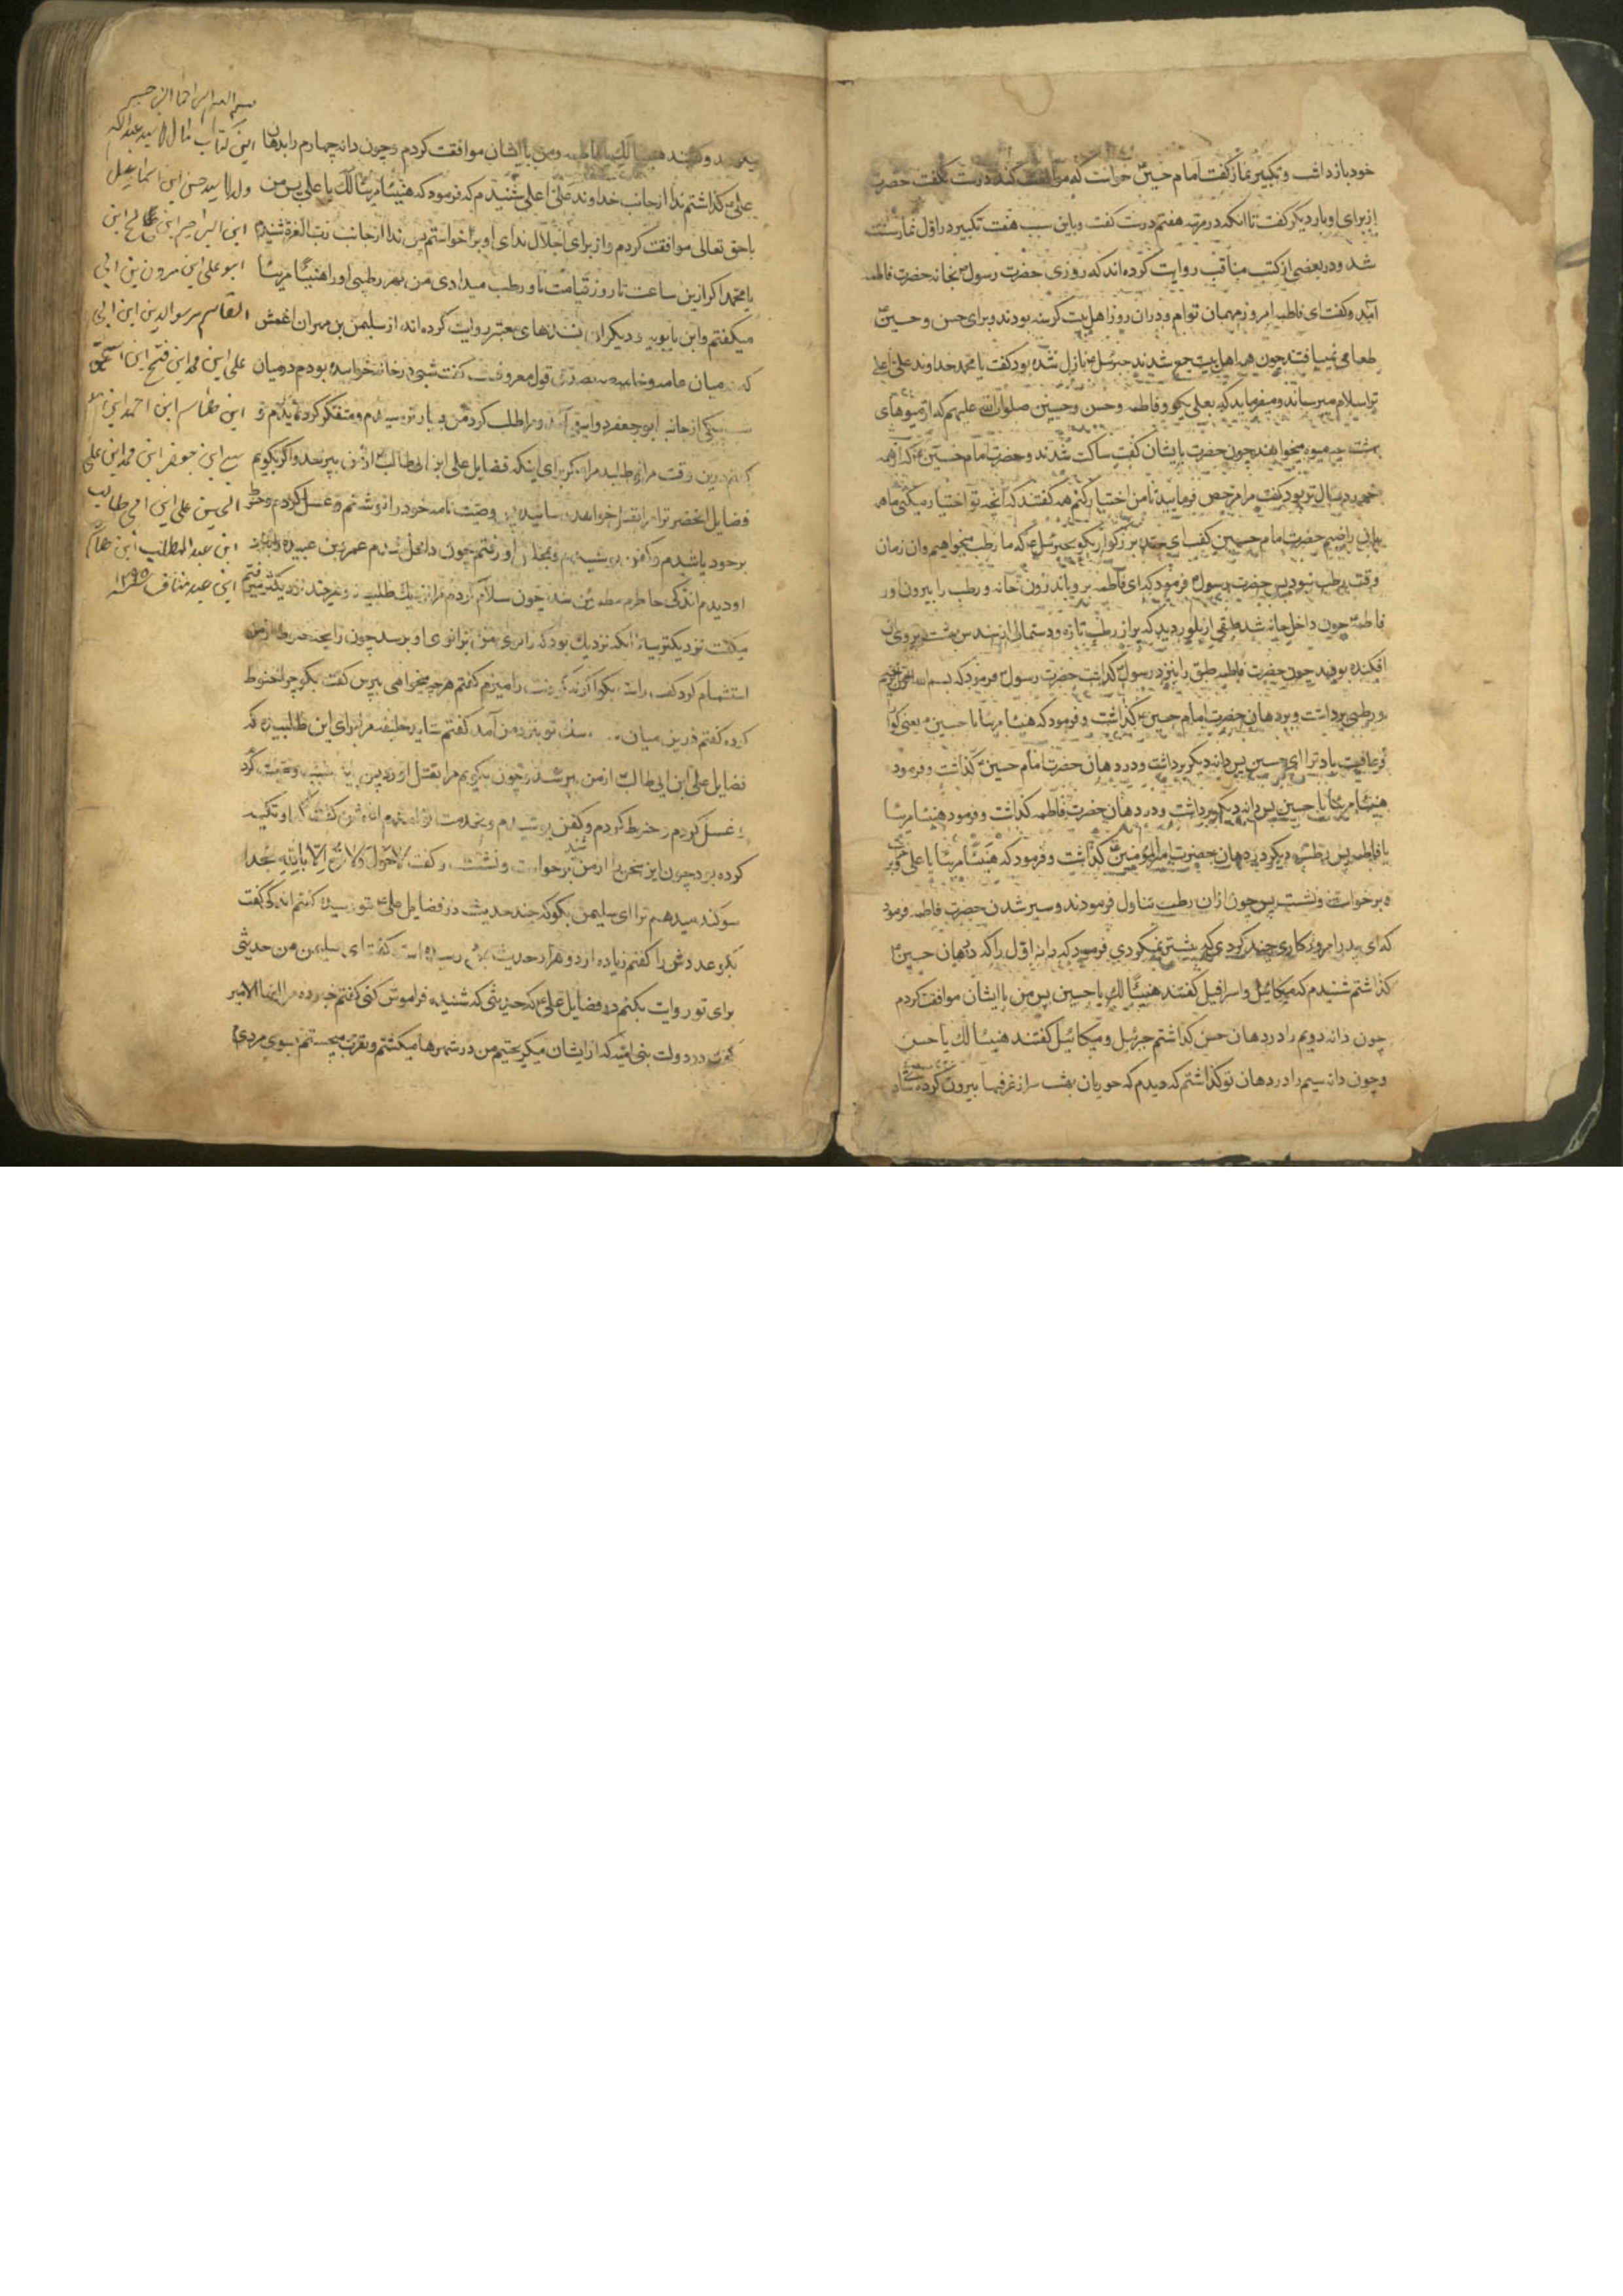 خود بازداشت و تکبیر نماز گفت امام حسین خواست که موافقت کند درست نگفت حضرت
از برای او بار دیگر گفت تا آنکه در مرتبه هفتم درست گفت و باین سبب هفت تکبیر در اول نماز سنت
شد و در بعضی از کتب مناقب روایت کرده اند که روزی حضرت رسول بخانه حضرت فاطمه
آمد و گفت ای فاطمه امروز مهمان توام و در آن روز اهل بیت گرسنه بودند و برای حسن و حسین
طعامی نمییافتند چون همه اهل بیت جمع شدند جبرئیل نازل شده بود گفت یا محمد خداوند علی اعلی
ترا سلام میرساند و میفرماید که بعلی بگو و فاطمه و حسن و حسین صلوات الله علیهم که از میوهای
بهشت چه میوه میخواهند چون حضرت بایشان گفت ساکت شدند و حضرت امام حسین که از همه
خورد سال تر بود گفت مرا مرخص فرمایید تا من اختیار کنم همه گفتند که آنچه تو اختیار میکنی ما همه
بان راضیم حضرت امام حسین گفت ای جد بزرگوار بگو بجبرئیل که ما رطب میخواهیم و آن زمان
وقت رطب نبود پس حضرت رسول فرمود که ای فاطمه برو باندرون خانه و رطب را بیرون آور
فاطمه چون داخل خانه شد طبقی از بلور دید که پر از رطب تازه و دستمالی از سندس بهشت بر روی آن
افکنده بودند چون حضرت فاطمه طبق را بنزد رسول گذاشت حضرت رسول فرمود که بسم الله الرحمن الرحیم
و رطبی برداشت و بر دهان حضرت امام حسین گذاشت و فرمود که هنیئا مریئا یا حسین یعنی گوارا
و عافیت باد ترا ای حسین پس دانه دیگر برداشت و در دهان حضرت امام حسن گذاشت و فرمود
هنیئا مریئا یا حسن پس دانه دیگر برداشت و در دهان حضرت فاطمه گذاشت و فرمود هنیئا مریئا
یا فاطمه پس رطب دیگر در دهان حضرت امیر المؤمنین گذاشت و فرمود که هنیئا مریئا یا علی
و برخواست و نشست پس چون از آن رطب تناول فرمودند و سیر شدن حضرت فاطمه فرمود
که ای پدر امروز کاری چند کردی که پیشتر نمیکردی فرمود که دانه اول را که در دهان حسین
گذاشتم شنیدم که میکائیل و اسرافیل گفتند هنیئا لک یا حسین پس من با ایشان موافقت کردم
چون دانه دویم را در دهان حسن گذاشتم جبرئیل و میکائیل گفتند هنیئا لک یا حسن
و چون دانه سیم را در دهان تو گذاشتم که دیدم که حوریان بهشت سر از غرفها بیرون کرده شاد
و گفتند هنیئا لک یا فاطمه و من با ایشان موافقت کردم و چون دانه چهارم را بدهان
علی گذاشتم ندا از جانب خداوند علی اعلی شنیدم که فرمود که هنیئا مریئا لک یا علی پس من
با حق تعالی موافقت کردم و از برای اجلال ندای او برخواستم پس ندا از جانب رب العزة شنیدم
یا محمد اگر ازین ساعت تا روز قیامت باو رطب میدادی من بهر رطبی او را هنیئا مریئا
میگفتم و ابن بابویه و دیگران بسندهای معتبر روایت کرده اند از سلیمن بن مهران اعمش
که میان عامه و خاصه قول معروفست گفت شبی در خانه خوابیده بودم در میان
شب یکی از جانب ابو جعفر دوانیقی آمد و مرا طلب کرد من بسیار ترسیدم و متفکر گردیدم و
گفتم درین وقت مرا نطلبید مگر برای اینکه فضایل علی ابن ابی طالب از من بپرسد و اگر بگویم
فضایل آنحضرت را مرا بقتل خواهد رسانید پس وصیت نامه خود را نوشتم و غسل کردم و حنوط
بر خود پاشیدم و کفن پوشیدم و بخدمت او رفتم چون داخل شدم عمرو بن عبید را نزد
او دیدم اندکی خاطرم مطمئن شد چون سلام کردم مرا نزدیک طلبید و هر چند نزدیکتر میرفتم
میگفت نزدیکتر بیا تا آنکه نزدیک بود که زانوی من بزانوی او برسد چون رایحه حنوط از من
استشمام کرد گفت راست بگو اگر نه گردنت را میزنم گفتم هر چه میخواهی بپرس گفت بگو چرا حنوط
کرده گفتم درین میان شب رسول تو بنزد من آمد گفتم شاید خلیفه مرا برای این طلبیده که
فضایل علی ابن ابی طالب از من بپرسد و چون بگویم مرا بقتل آورد پس وصیت نامه نوشتم
و غسل کردم و حنوط کردم و کفن پوشیدم و بخدمت تو آمدم
کرده بود چون این سخن را از من شنید برخواست و نشست و گفت لا حول ولا قوة الا بالله بخدا
سوگند میدهم ترا ای سلیمن بگو که چند حدیث در فضایل علی بتو رسیده گفتم اندکی گفت
بگو عددش را گفتم زیاده از ده هزار حدیث بمن رسیده است گفت ای سلیمن من حدیثی
برای تو روایت بکنم در فضایل علی که هر حدیثی که شنیده فراموش کنی گفتم خبر ده مرا ایها الامیر
گفت در دولت بنی امیه که از ایشان میگریختم من در شهرها میگشتم و تقرب میجستم بسوی مردم
بسم الله الرحمن الرحیم
این کتاب مال سید عبدالله
ولد سید حسن ابن اسماعیل
ابن ابراهیم ابن صالح ابن
ابو علی ابن
القاسم
علی ابن محمد ابن فتح ابن اسحق
ابن هاشم ابن احمد ابن
ابن جعفر ابن محمد ابن علی
الحسین علی ابن ابی طالب
ابن عبد المطلب ابن هاشم
ابن عبد مناف